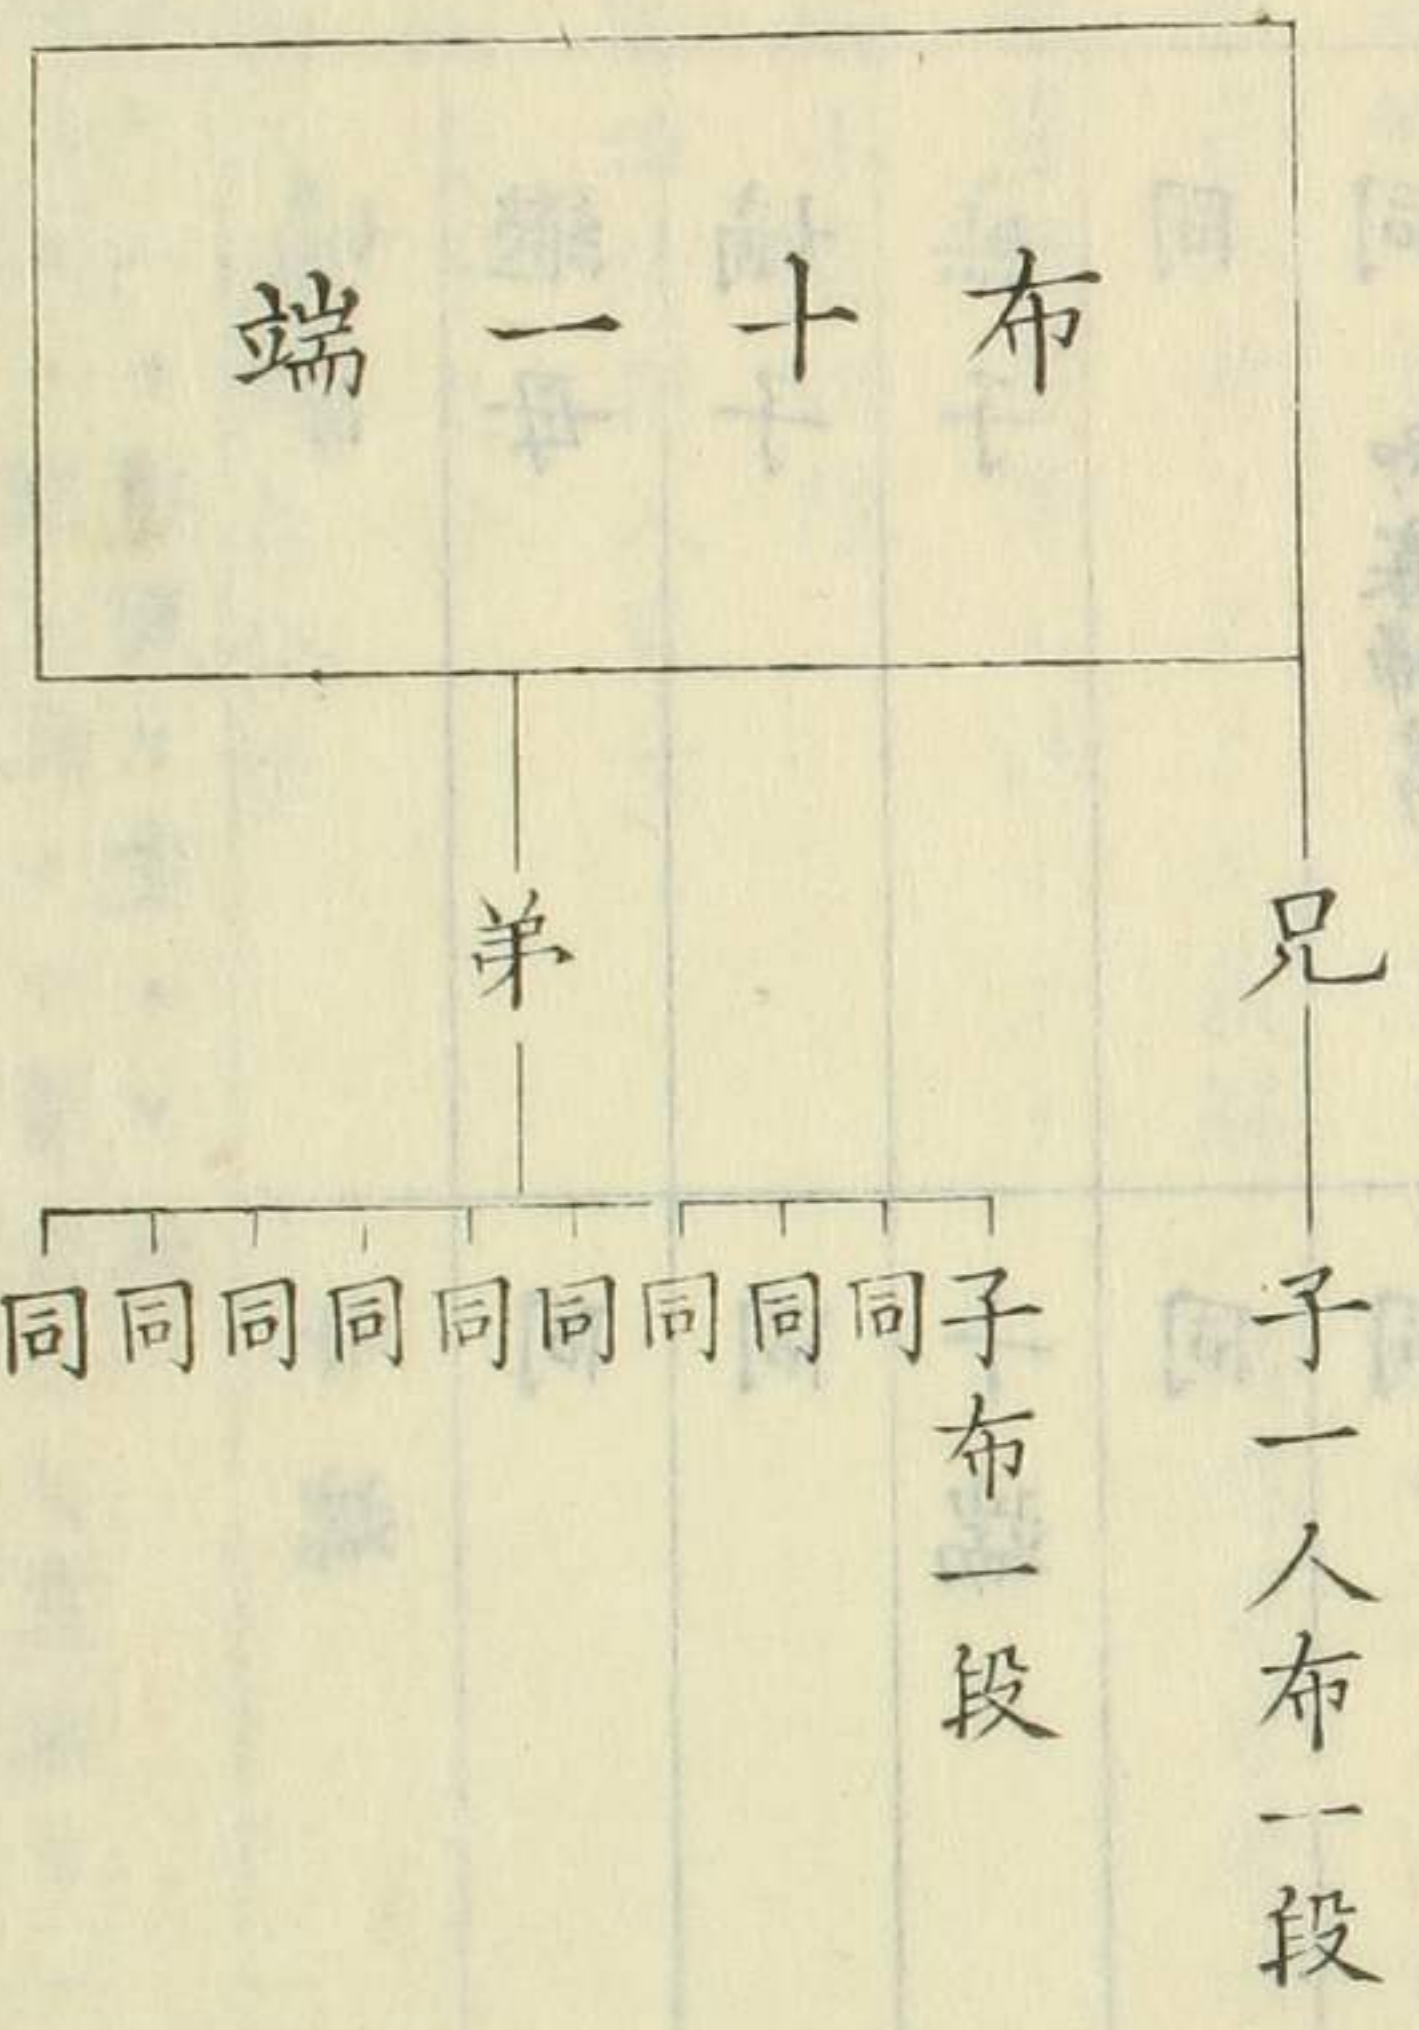 布十一端
兄
子一人布一段
弟
子布一段
同
同
同
同
同
同
同
同
同